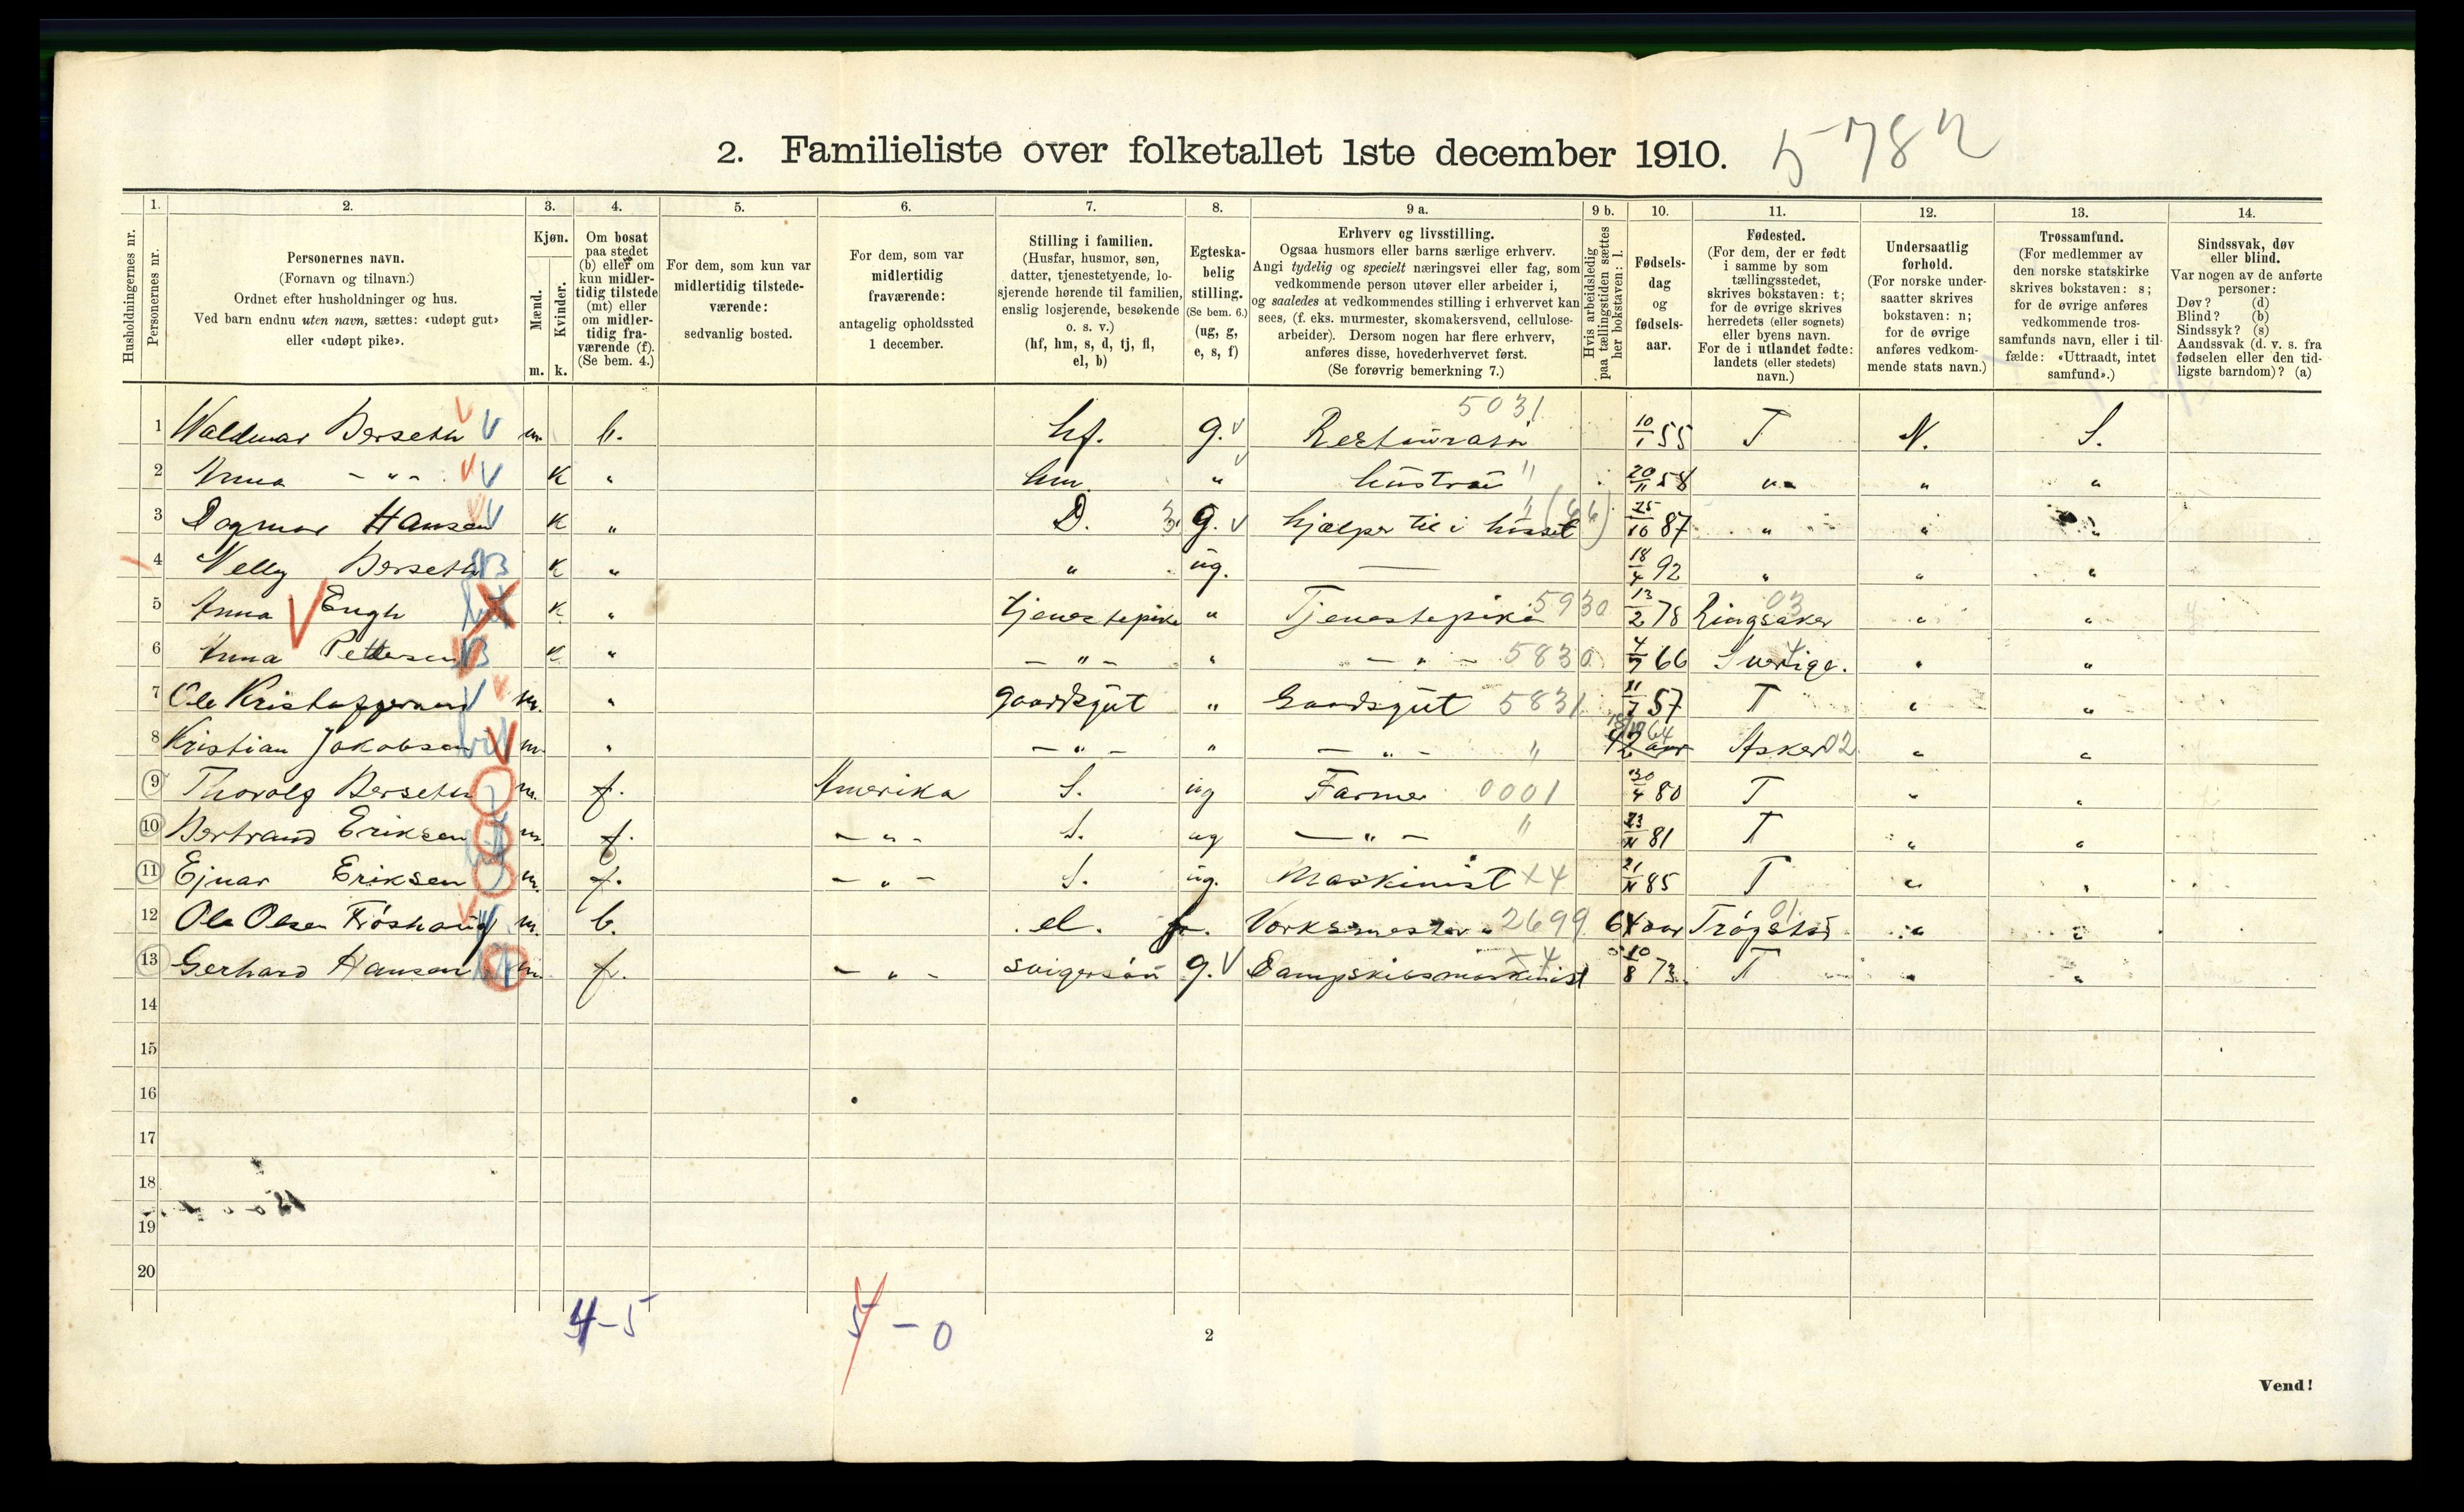 2. Familieliste over folketallet 1ste december 1910. 5782
Husholdningernes nr.
1. Personernes nr.
2. Personernes navn.
(Fornavn og tilnavn.)
Ordnet efter husholdninger og hus.
Ved barn endnu uten navn, sættes: «udøpt gut»
eller «udøpt pike».
3. Kjøn.
Mænd. m.
Kvinder. k.
4. Om bosat
paa stedet
(b) eller om
kun midler-
tidig tilstede
(mt) eller
om midler-
tidig fra-
værende (f).
(Se bem. 4.)
5. For dem, som kun var
midlertidig tilstede-
værende:
sedvanlig bosted.
6. For dem, som var
midlertidig
fraværende:
antagelig opholdssted
1 december.
7. Stilling i familien.
(Husfar, husmor, søn,
datter, tjenestetyende, lo-
sjerende hørende til familien,
enslig losjerende, besøkende
o. s. v.)
(hf, hm, s, d, tj, fl,
el, b)
8. Egteska-
belig
stilling.
(Se bem. 6.)
(ug, g,
e, s, f)
9 a. Erhverv og livsstilling.
Ogsaa husmors eller barns særlige erhverv.
Angi tydelig og specielt næringsvei eller fag, som
vedkommende person utøver eller arbeider i,
og saaledes at vedkommendes stilling i erhvervet kan
sees, (f. eks. murmester, skomakersvend, cellulose-
arbeider). Dersom nogen har flere erhverv,
anføres disse, hovederhvervet først.
(Se forøvrig bemerkning 7.)
9 b. Hvis arbeidsledig
paa tællingstiden sættes
her bokstaven: l.
10. Fødsels-
dag
og
fødsels-
aar.
11. Fødested.
(For dem, der er født
i samme by som
tællingsstedet,
skrives bokstaven: t;
for de øvrige skrives
herredets (eller sognets)
eller byens navn.
For de i utlandet fødte:
landets (eller stedets)
navn.)
12. Undersaatlig
forhold.
(For norske under-
saatter skrives
bokstaven: n;
for de øvrige
anføres vedkom-
mende stats navn.)
13. Trossamfund.
(For medlemmer av
den norske statskirke
skrives bokstaven: s;
for de øvrige anføres
vedkommende tros-
samfunds navn, eller i til-
fælde: «Uttraadt, intet
samfund».)
14. Sindssvak, døv
eller blind.
Var nogen av de anførte
personer:
Døv? (d)
Blind? (b)
Sindssyk? (s)
Aandssvak (d. v. s. fra
fødselen eller den tid-
ligste barndom)? (a)
1 Waldmar Berseth m. b. hf. g. Restauratør 5031 10/1 55 T N. S.
2 Anna -"- k " hm. " hustru " 20/11 58 " " "
3 Dagmar Hansen k " D. 3. g. hjælper til i huset " (66) 25/10 87 " " "
4 Nelly Berseth k " " ug. — 18/4 92 " " "
5 Anna Engh k " tjenestepike " Tjenestepike 5930 13/2 78 Ringsaker 03 " "
6 Anna Pettersen k " -"- " -"- 5830 4/7 66 Sverige. " "
7 Ole Kristoffersen m. " gaardsgut " Gaardsgut 5831 11/7 57 T " "
8 Kristian Jakobsen m. " -"- " -"- " 42 aar 64 Asker 02 " "
9 Thoralf Berseth m. f. Amerika S. ug Farmer 0001 30/4 80 T " "
10 Bertrand Eriksen m. f. -"- S. ug -"- " 23/11 81 T " "
11 Ejnar Eriksen m. f. -"- S. ug. Maskinist X4 21/11 85 T " "
12 Ole Olsen Frøshaug m. b. el. Værksmester 2699 64 aar Trøgstad 01 " "
13 Gerhard Hansen m f. -"- svigersøn g. Dampskibsmaskinist X4 10/8 73. T " "
14
15
16
17
18
19
20
4-5
5 - 0
2
Vend!